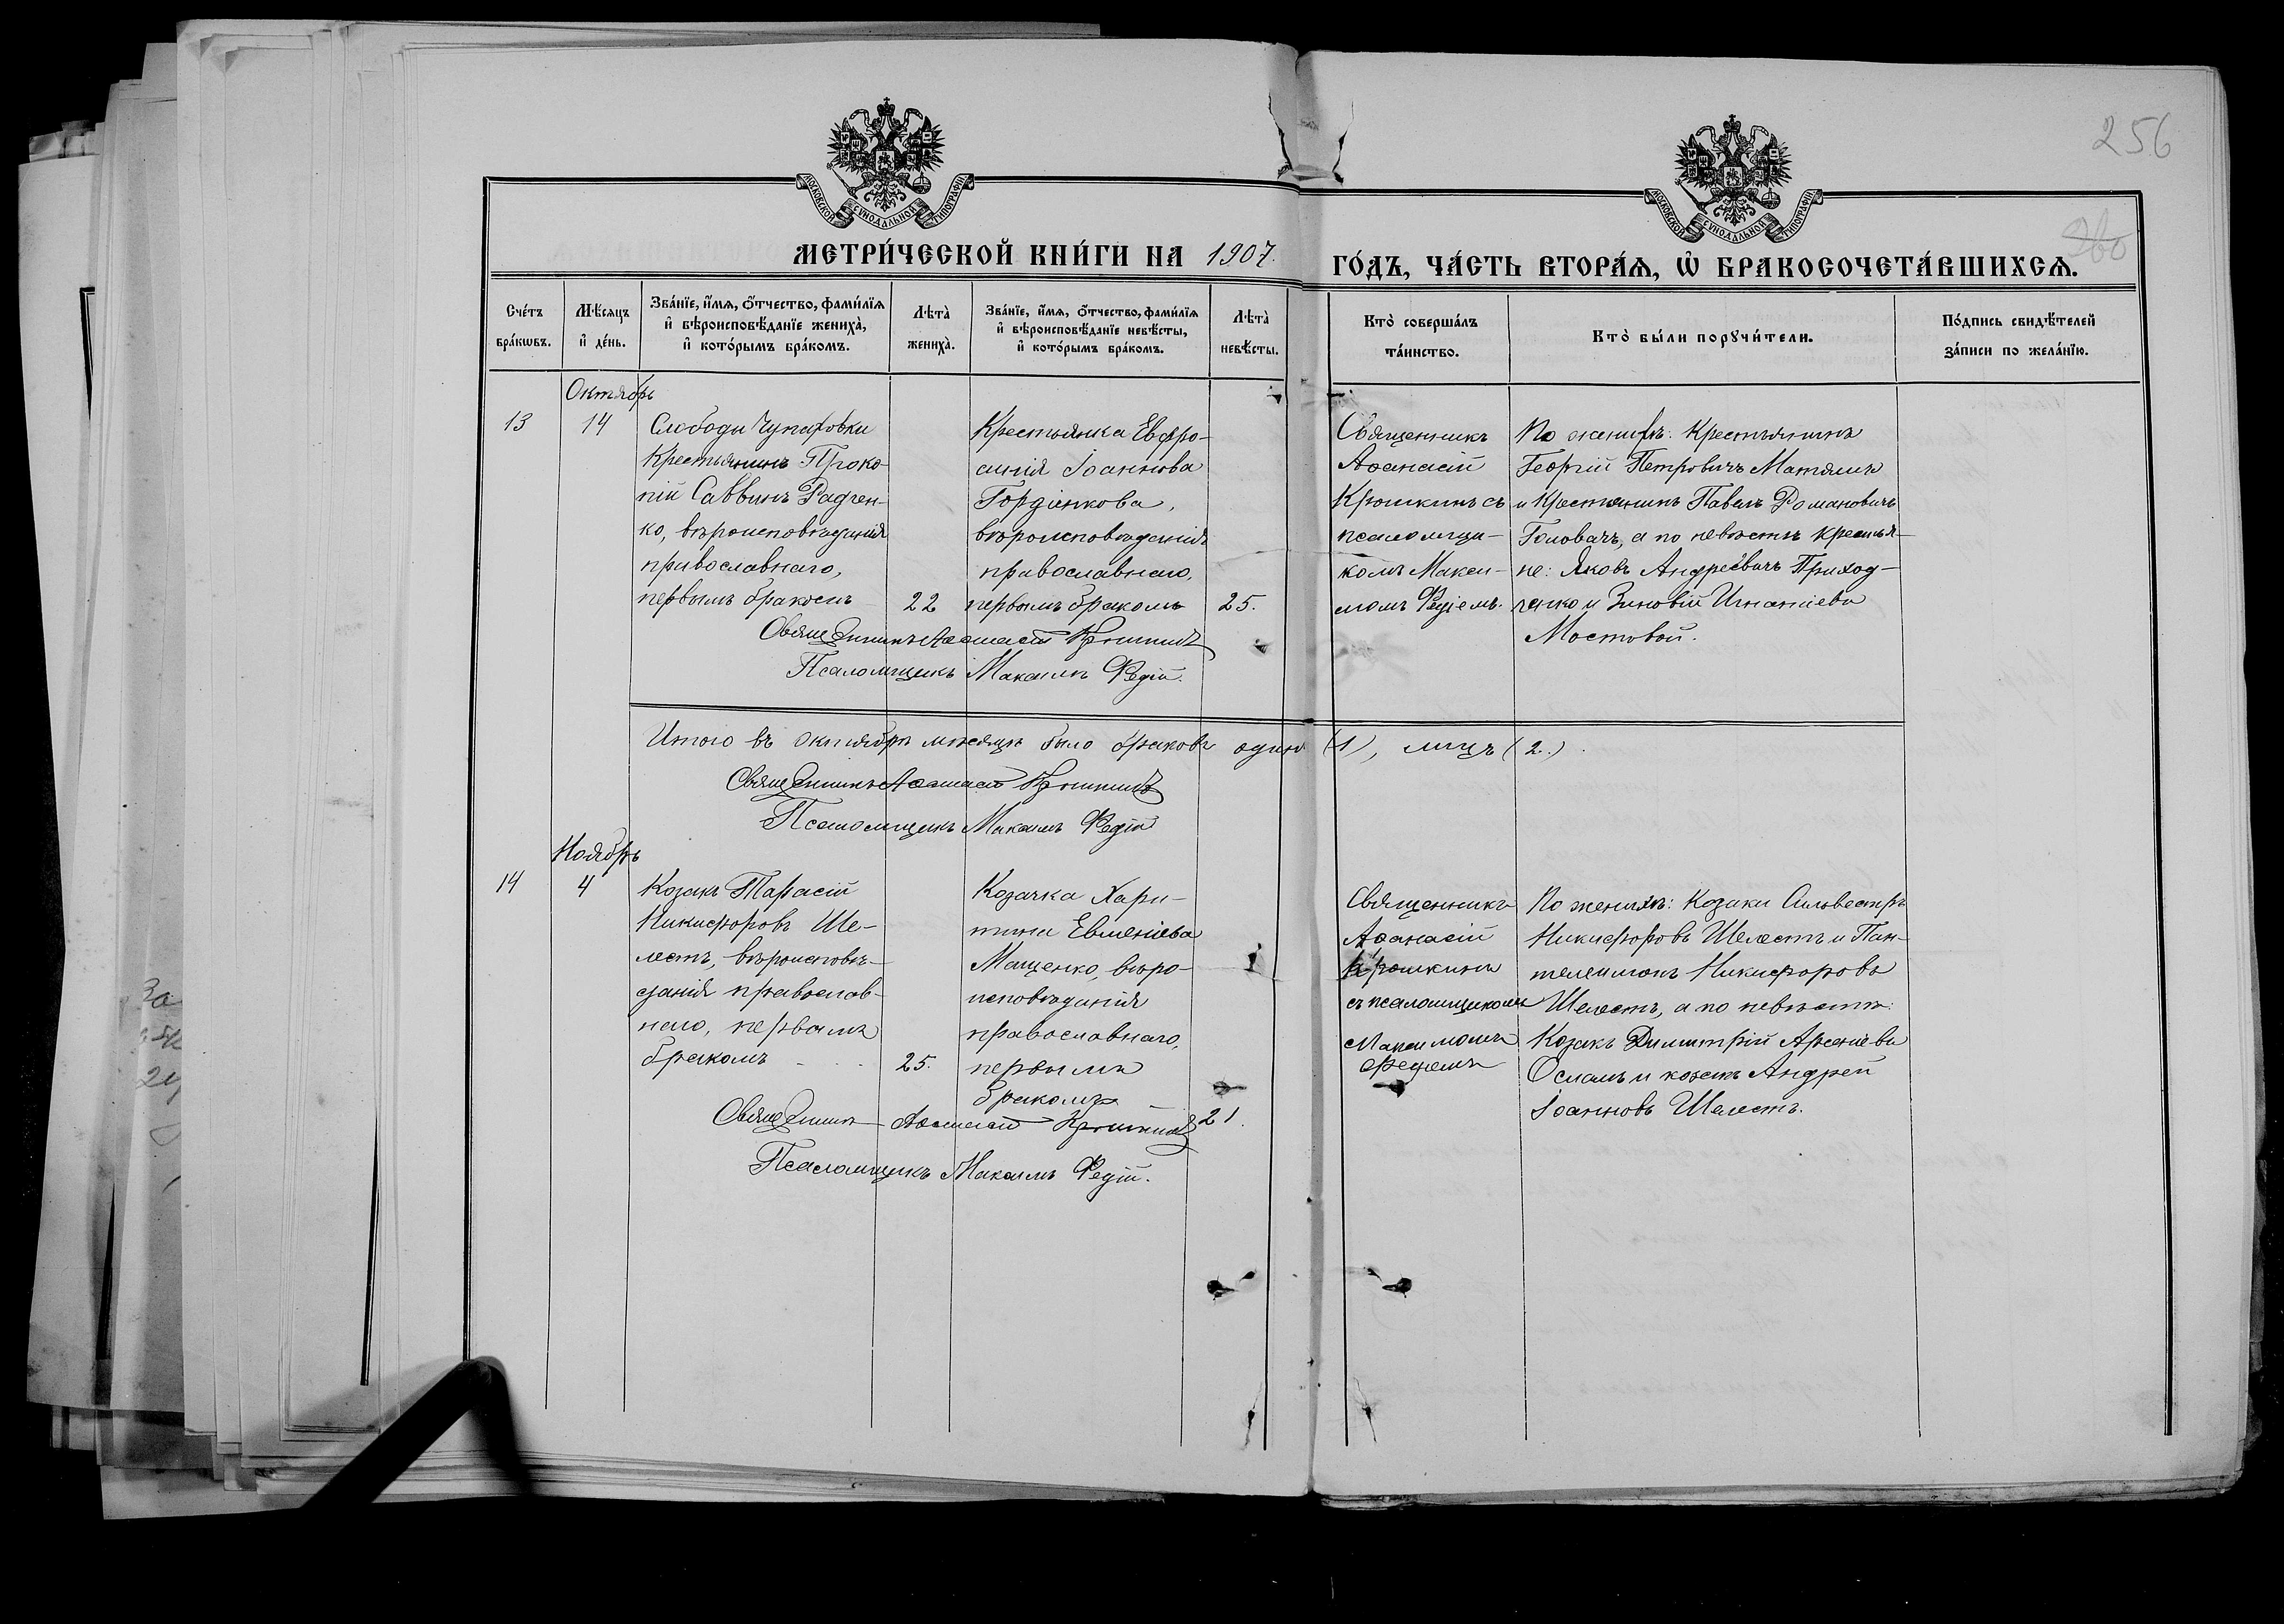 256
260
МОСКОВСКОЙ СѴНОДАЛЬНОЙ ТИПОГРАФІИ
МОСКОВСКОЙ СѴНОДАЛЬНОЙ ТИПОГРАФІИ
МЕТРИ́ЧЕСКОЙ КНИ́ГИ НА 1907.
ГО́ДЪ, ЧА́СТЬ ВТОРА́Ѧ, Ѡ҆ БРАКОСОЧЕТА́ВШИХСѦ.
Сче́тъ
бра́кѡвъ.
Мѣ́сяцъ
и҆ де́нь.
Зва́нїе, и҆́мѧ, ѻ҆́тчество, фами́лїѧ
и҆ вѣроисповѣ́данїе жениха̀,
и҆ кото́рымъ бра́комъ.
Лѣта̀
жениха̀.
Зва́нїе, и҆́мѧ, ѻ҆́тчество, фами́лїѧ
и҆ вѣроисповѣ́данїе невѣ́сты,
и҆ кото́рымъ бра́комъ.
Лѣта̀
невѣ́сты.
Кто̀ соверша́лъ
та́инство.
Кто̀ бы́ли порꙋчи́тели.
По́дпись свидѣ́телей
за́писи по жела́нїю.
Октябрь
13
14
Слободы Чупаховки
Крестьянинъ Проко-
пій Саввинъ Радчен-
ко, вѣроисповѣданія
православнаго,
первымъ бракомъ
22
Крестьянка Евфро-
синія Іоаннова
Гордіенкова,
вѣроисповѣданія
православнаго,
первымъ бракомъ
25.
Священникъ
Аѳанасій
Крошкинъ съ
псаломщи-
комъ Макси-
момъ Федіемъ.
По женихѣ: Крестьянинъ
Георгій Петровичъ Матяшъ
и Крестьянинъ Павелъ Романовичъ
Головачъ, а по невѣстѣ крестья-
не: Яковъ Андреевичъ Приход-
ченко и Зиновій Игнатіевъ
Мостовой.
Священникъ Аѳанасій Крошкинъ
Псаломщикъ Максимъ Федій.
Итого въ октябрѣ мѣсяцѣ было браковъ одинъ (1), лицъ (2.).
Священникъ Аѳанасій Крошкинъ
Псаломщикъ Максимъ Федій
Ноябрь
14
4
Козакъ Тарасій
Никифоровъ Ше-
лестъ, вѣроисповѣ-
данія православ-
наго, первымъ
бракомъ
25.
Козачка Хари-
тина Евменіева
Мащенко, вѣро-
исповѣданія
православнаго,
первымъ
бракомъ
21.
Священникъ
Аѳанасій
Крошкинъ
съ псаломщикомъ
Максимомъ
Федіемъ
По женихѣ: Козаки Сильвестръ
Никифоровъ Шелестъ и Пан-
телеимонъ Никифоровъ
Шелестъ, а по невѣстѣ:
Козакъ Димитрій Арсеніевъ
и козакъ Андрей
Іоанновъ Шелестъ.
Священникъ Аѳанасій Крошкинъ
Псаломщикъ Максимъ Федій.